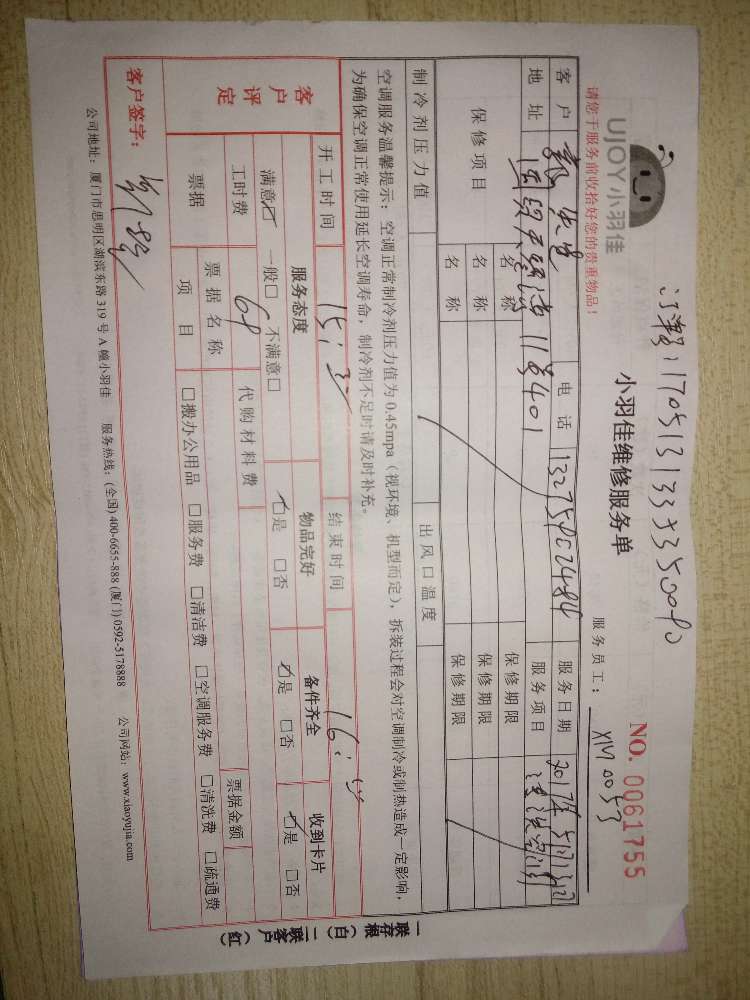 UJOY小羽佳
小羽佳维修服务单
NO. 0061755
请您于服务前收拾好您的贵重物品！
服务员工： XM0053
客户 先生 电话 13275902484 服务日期 2017年5月13日
地址 11号401 服务项目
保修项目 名称 保修期限
名称 保修期限
名称 保修期限
制冷剂压力值 出风口温度
空调服务温馨提示：空调正常制冷剂压力值为 0.45mpa（视环境、机型而定），拆装过程会对空调制冷或制热造成一定影响，
为确保空调正常使用延长空调寿命，制冷剂不足时请及时补充。
开工时间 15: 结束时间 16:
客户评定 服务态度 物品完好 备件齐全 收到卡片
满意☑ 一般□ 不满意□ ☑是 □否 ☑是 □否 ☑是 □否
工时费 代购材料费
票据 票据名称 票据金额
项目 □搬办公用品 □服务费 □清洁费 □空调服务费 □清洗费 □疏通费
客户签字：
公司地址：厦门市思明区湖滨东路 319 号 A 幢小羽佳 服务热线：(全国) 400-6655-888 (厦门) 0592-5178888 公司网站：www.xiaoyujia.com
一联存根（白）二联客户（红）